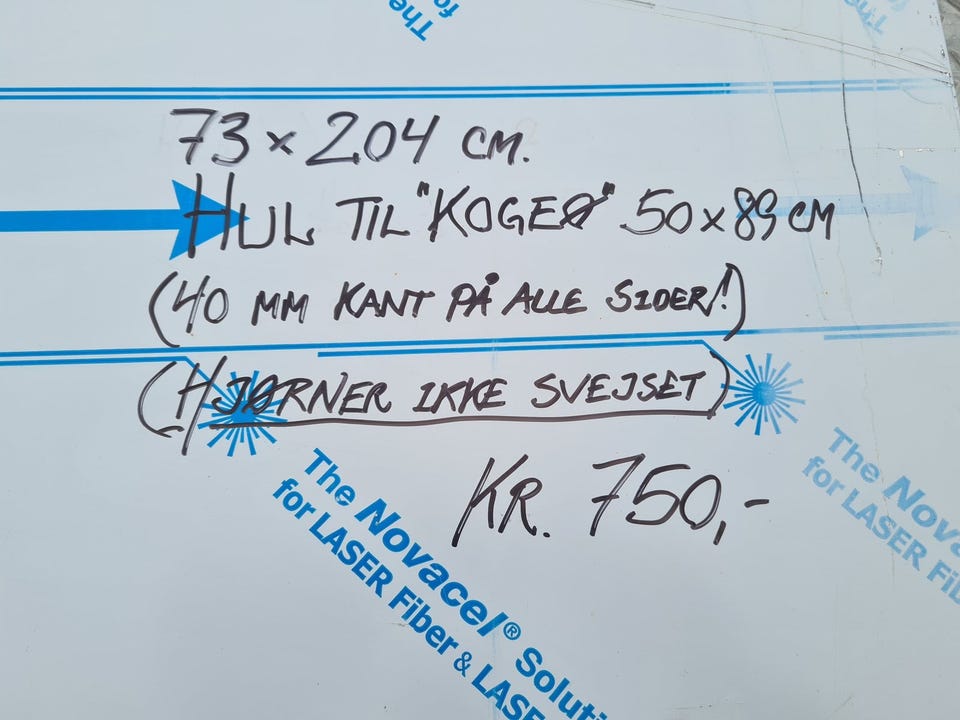 The
for
The
73 x 204 CM.
HUL TIL "KOGEØ" 50 x 89 CM
(40 MM KANT PÅ ALLE SIDER!)
(HJØRNER IKKE SVEJSET)
KR. 750,-
The Novacel® Soluti
for LASER Fiber & LAS
The Nova
for LASER Fi